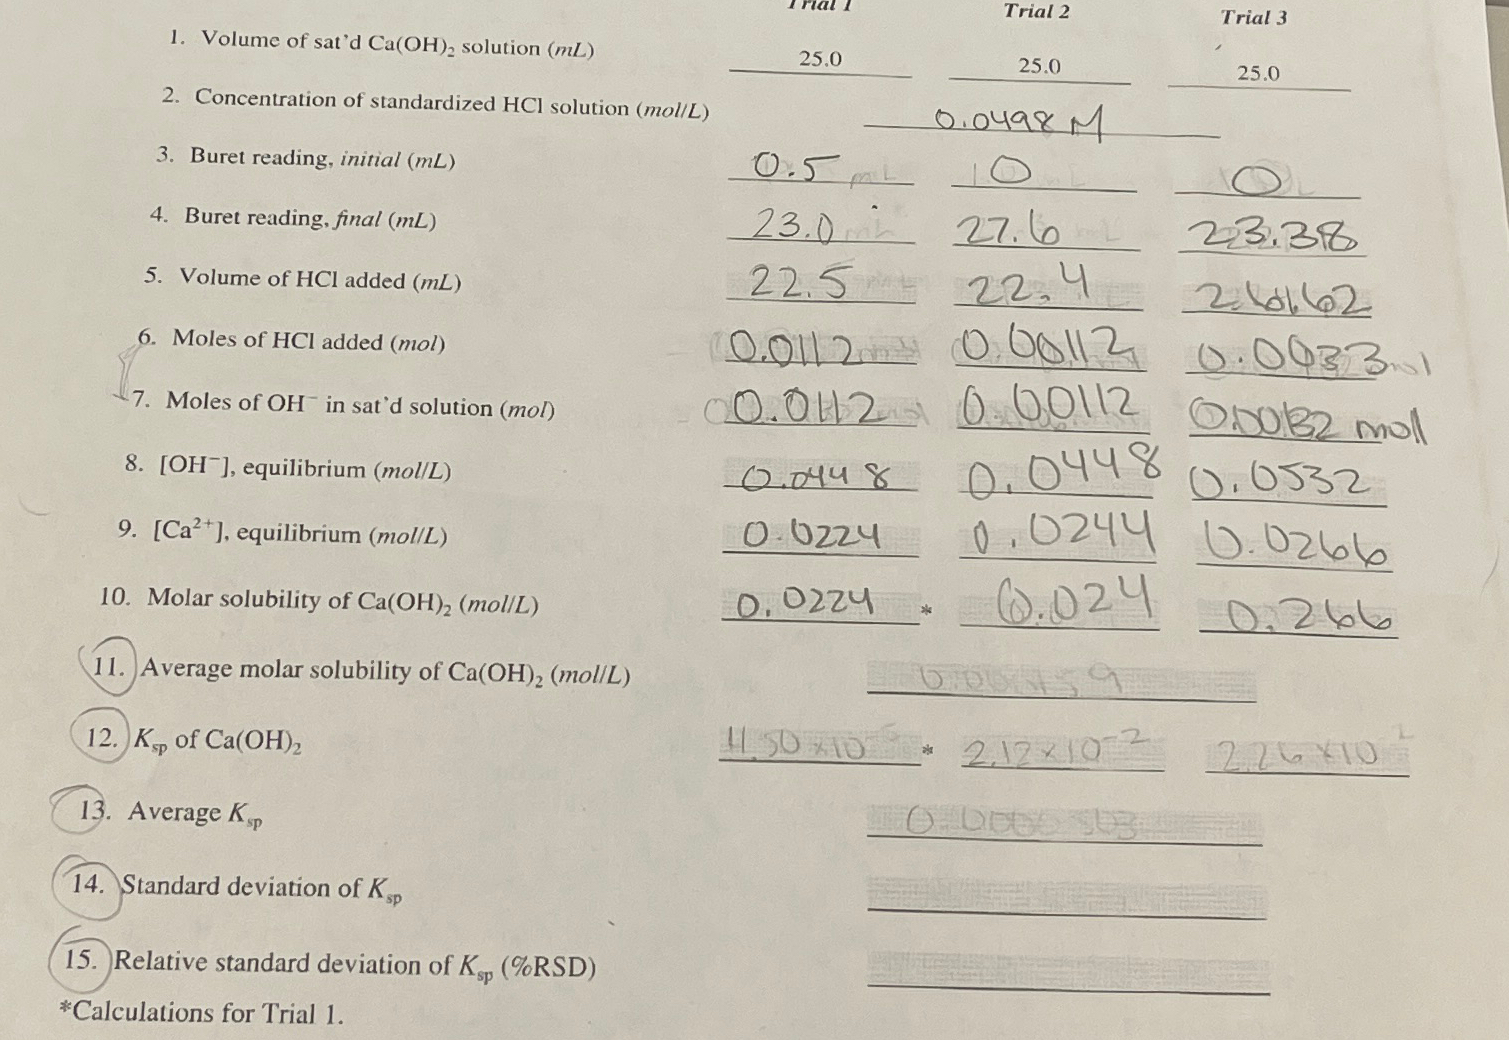 Trial 1 Trial 2 Trial 3
1. Volume of sat'd Ca(OH)₂ solution (mL) 25.0 25.0 25.0
2. Concentration of standardized HCl solution (mol/L) 0.0498 M
3. Buret reading, initial (mL) 0.5 10 0
4. Buret reading, final (mL) 23.0 27.6 23.38
5. Volume of HCl added (mL) 22.5 22.4
6. Moles of HCl added (mol) 0.0112 0.00112 0.0033
7. Moles of OH⁻ in sat'd solution (mol) 0.0112 0.00112 mol
8. [OH⁻], equilibrium (mol/L) 0.0448 0.0448 0.0532
9. [Ca²⁺], equilibrium (mol/L) 0.0224 0.0244 0.0266
10. Molar solubility of Ca(OH)₂ (mol/L) 0.0224 * 0.024 0.266
11. Average molar solubility of Ca(OH)₂ (mol/L)
12. Ksp of Ca(OH)₂ * 2.12 x 10⁻² 2.26 x 10⁻²
13. Average Ksp
14. Standard deviation of Ksp
15. Relative standard deviation of Ksp (%RSD)
*Calculations for Trial 1.